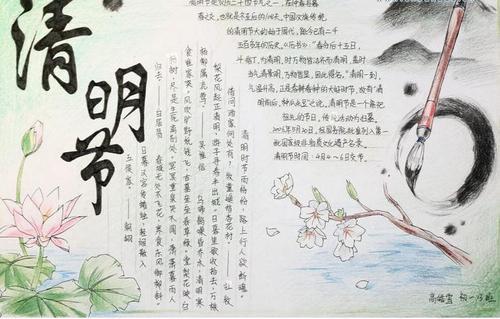 清明节
清明节是农历二十四节气之一,在仲春与暮
春之交,也就是冬至后的108天。中国汉族传统
的清明节大约始于周代,距今已有二千
五百多年的历史。《历书》:"春分后十五日,
斗指丁,为清明,时万物皆洁齐而清明,盖时
当气清景明,万物皆显,因此得名。"清明一到,
气温升高,正是春耕春种的大好时节,故有"清
明前后,种瓜点豆"之说。清明节是一个祭祀
祖先的节日,传统活动为扫墓。
2006年5月20日,经国务院批准列入第一
批国家级非物质文化遗产名录。
清明节时间:4月4~6日交节。
清明时节雨纷纷,路上行人欲断魂。
借问酒家何处有?牧童遥指杏花村。
梨花风起正清明,游子寻春半出城。日暮笙歌收拾去,万株
杨柳属流莺。——吴惟信
乌啼鹊噪昏乔木,清明寒
食谁家哭。风吹旷野纸钱飞,古墓垒垒春草绿。棠梨花映白
杨树,尽是死生离别处。冥冥重泉哭不闻,萧萧暮雨人
归去。——白居易
春城无处不飞花,寒食东风御柳斜。
日暮汉宫传蜡烛,轻烟散入
五侯家。——韩翃
高皓雪 初一